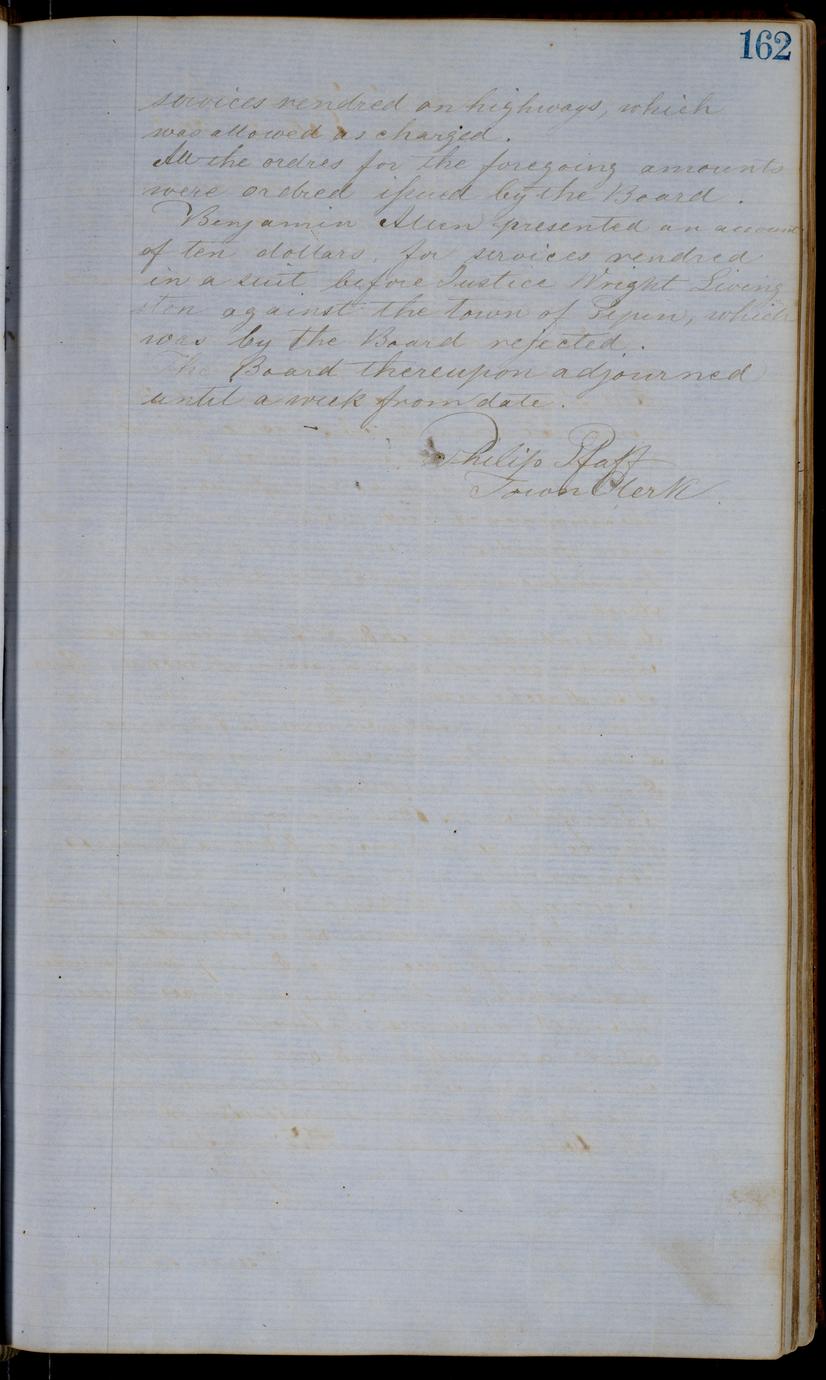 162
services rendred on highways, which
was allowed as charged.
All the ordres for the foregoing amounts
were ordred issued by the Board.
Benjamin Allen presented an account
of ten dollars, for services rendred
in a suit before Justice Wright Living
ston against the town of Pepin, which
was by the Board rejected.
The Board thereupon adjourned
until a week from date.
Philip Pfaff
Town Clerk